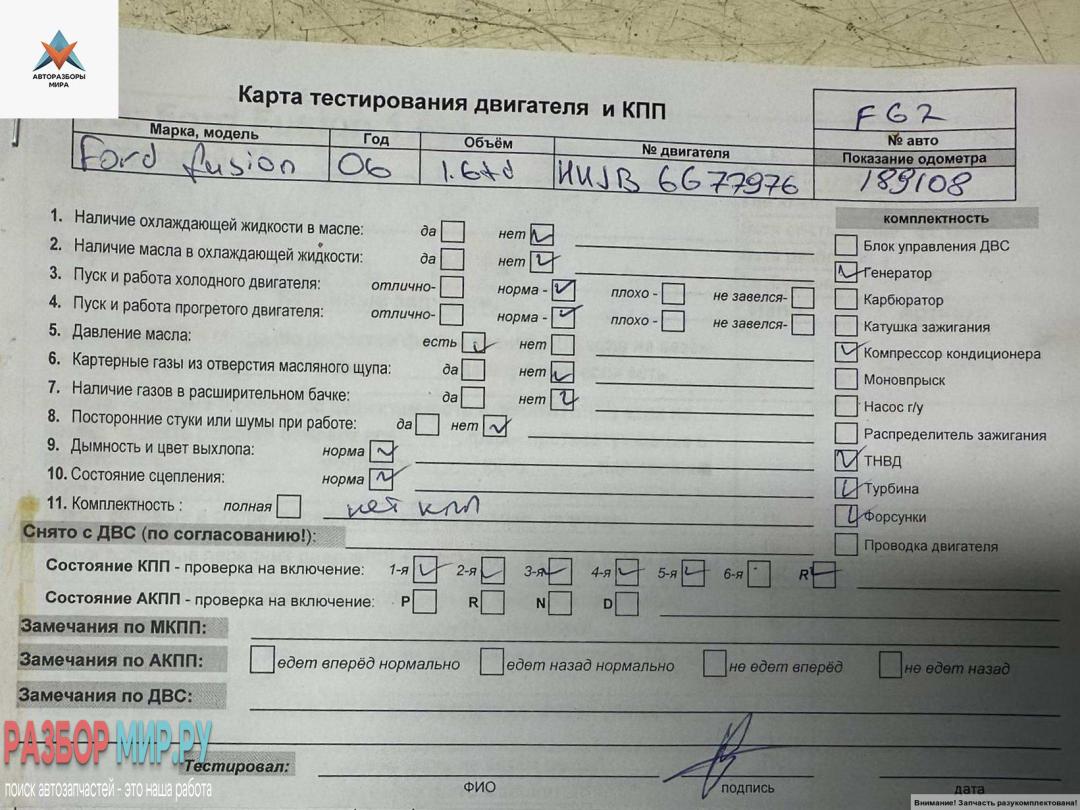 АВТОРАЗБОРЫ
МИРА
Карта тестирования двигателя и КПП
F62
№ авто
Марка, модель Год Объём № двигателя Показание одометра
Ford fusion 06 1.6td HHJB 6G77976 189108
комплектность
1. Наличие охлаждающей жидкости в масле: да нет
Блок управления ДВС
2. Наличие масла в охлаждающей жидкости: да нет
Генератор
3. Пуск и работа холодного двигателя: отлично- норма - плохо - не завелся-
Карбюратор
4. Пуск и работа прогретого двигателя: отлично- норма - плохо - не завелся-
Катушка зажигания
5. Давление масла: есть нет
Компрессор кондиционера
6. Картерные газы из отверстия масляного щупа: да нет
Моновпрыск
7. Наличие газов в расширительном бачке: да нет
Насос г/у
8. Посторонние стуки или шумы при работе: да нет
Распределитель зажигания
9. Дымность и цвет выхлопа: норма
ТНВД
10. Состояние сцепления: норма
Турбина
11. Комплектность : полная нет кпп
Форсунки
Снято с ДВС (по согласованию!):
Проводка двигателя
Состояние КПП - проверка на включение: 1-я 2-я 3-я 4-я 5-я 6-я R
Состояние АКПП - проверка на включение: P R N D
Замечания по МКПП:
Замечания по АКПП: едет вперёд нормально едет назад нормально не едет вперёд не едет назад
Замечания по ДВС:
РАЗБОР МИР.РУ
Тестировал:
поиск автозапчастей - это наша работа
ФИО подпись дата
Внимание! Запчасть разукомплектована!